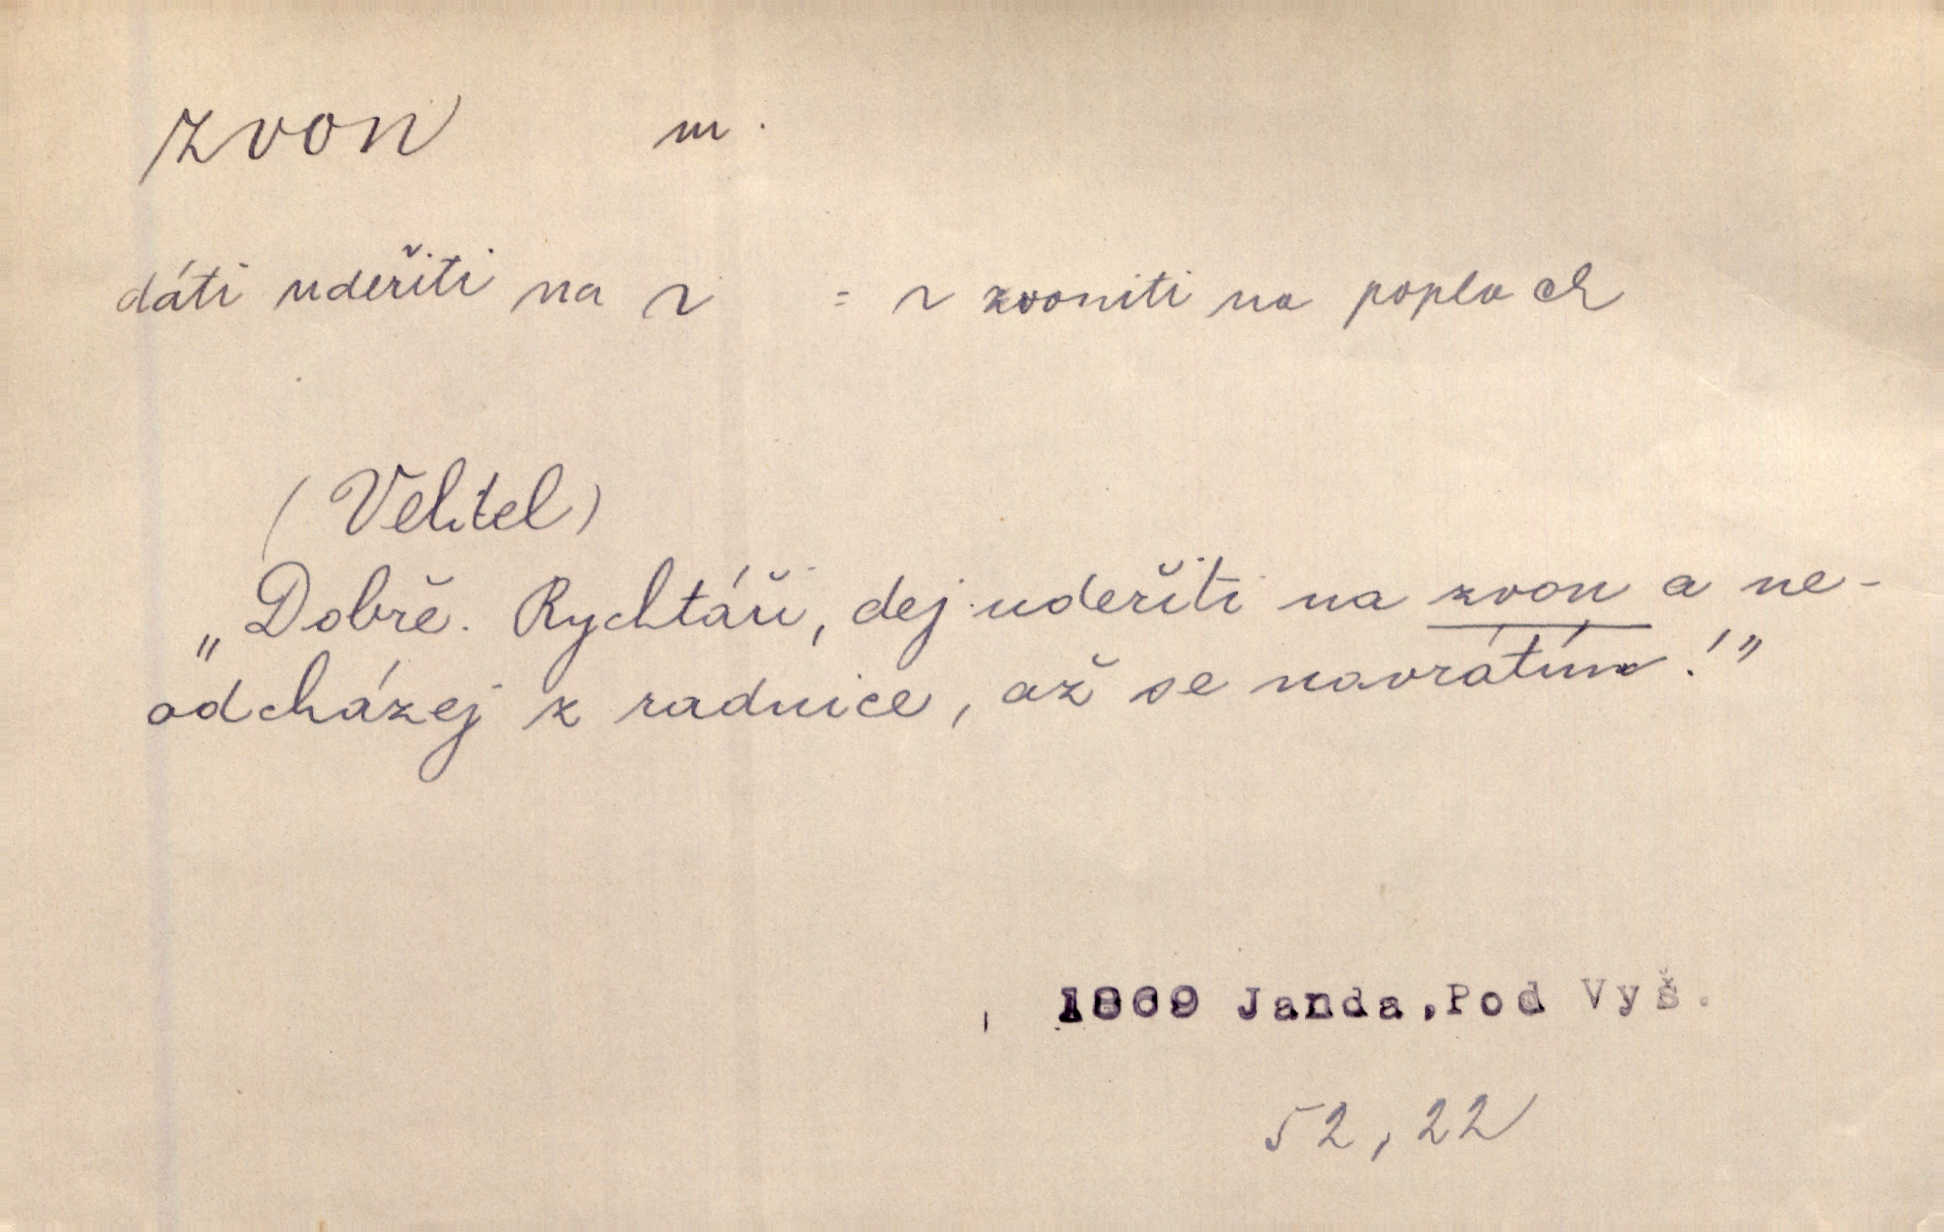 zvon m.
dáti udeřiti na z = z zvoniti na poplach
(Velitel)
„Dobře. Rychtáři, dej udeřiti na zvon a ne-
odcházej z radnice, až se navrátím!”
1869 Janda, Pod Vyš.
52, 22